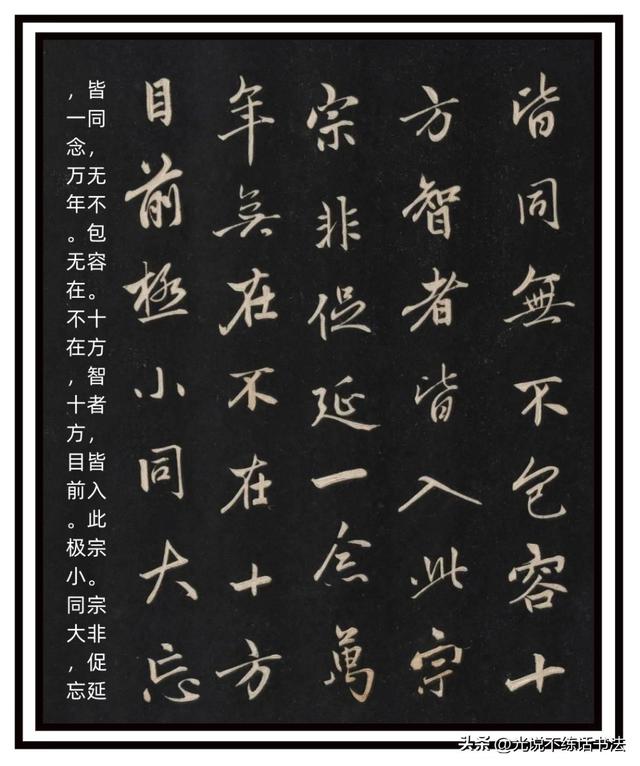 皆同無不包容十
方智者皆入此宗
宗非促延一念萬
年無在不在十方
目前極小同大忘
皆同，无不包容。十方智者，皆入此宗。宗非促延
，一念万年。无在不在，十方目前。极小同大，忘
头条 @光说不练话书法